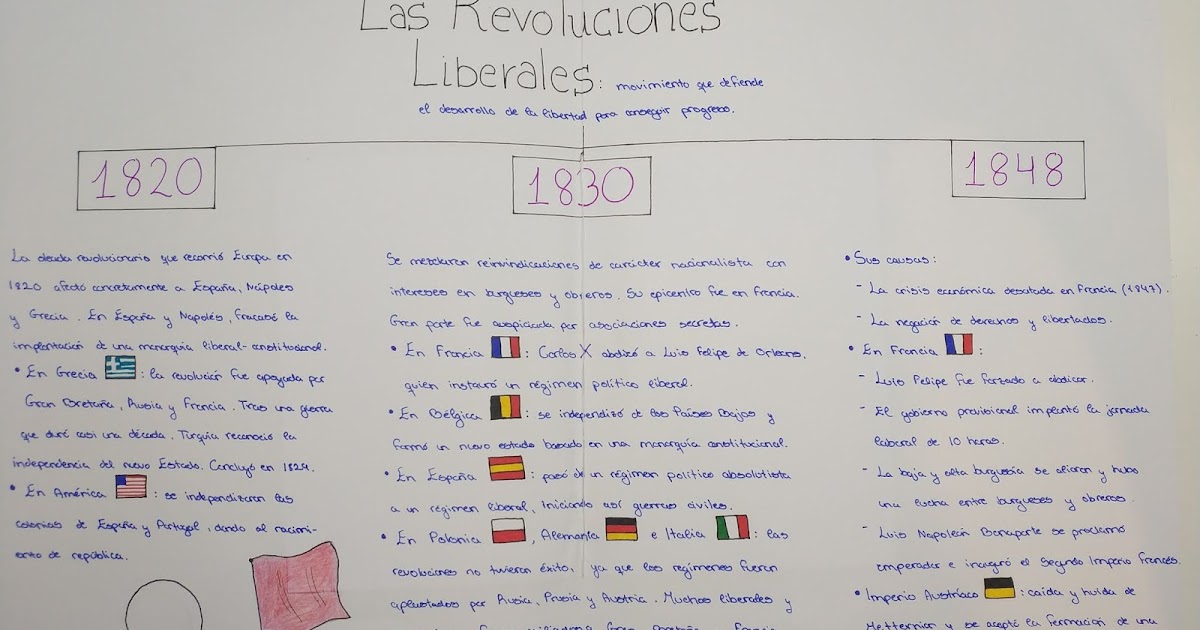 Las Revoluciones
Liberales: movimiento que defiende
el desarrollo de la libertad para conseguir progreso.
1820
1830
1848
La década revolucionaria que recorrió Europa en
1820 afectó concretamente a España, Nápoles
y Grecia. En España y Napolés, fracasó la
implantación de una monarquía liberal-constitucional.
• En Grecia : la revolución fue apoyada por
Gran Bretaña, Rusia y Francia. Tras una guerra
que duró casi una década, Turquía reconoció la
independencia del nuevo Estado. Concluyó en 1829.
• En América : se independizaron las
colonias de España y Portugal, dando al nacimi-
ento de república.
Se mezclaron reinvindicaciones de carácter nacionalista con
intereses en burgueses y obreros. Su epicentro fue en Francia.
Gran parte fue auspiciada por asociaciones secretas.
• En Francia : Carlos X abdicó a Luis Felipe de Orleans,
quien instauró un régimen político liberal.
• En Bélgica : se independizó de los Países Bajos y
formó un nuevo estado basado en una monarquía constitucional.
• En España : pasó de un régimen político absolutista
a un régimen liberal, iniciando así guerras civiles.
• En Polonia , Alemania e Italia : las
revoluciones no tuvieron éxito, ya que los regímenes fueron
aplastados por Rusia, Prusia y Austria. Muchos liberales y
• Sus causas:
- La crisis económica desatada en Francia (1847).
- La negación de derechos y libertades.
• En Francia :
- Luis Felipe fue forzado a abdicar.
- El gobierno provisional implantó la jornada
laboral de 10 horas.
- La baja y alta burguesía se aliaron y hubo
una lucha entre burgueses y obreros.
- Luis Napoleón Bonaparte se proclamó
emperador e inauguró el Segundo Imperio Francés.
• Imperio Austríaco : caída y huida de
Metternich y se aceptó la formación de una